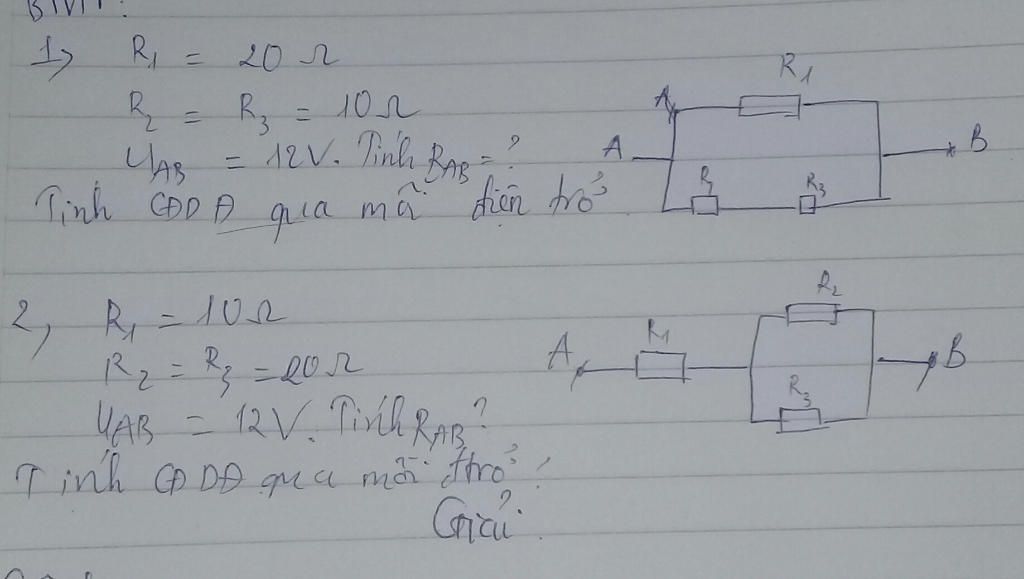 BTVN:
1, R1 = 20 Ω
R2 = R3 = 10Ω
UAB = 12V. Tính RAB = ?
Tính CĐDĐ qua mỗi điện trở
R1
A
A
B
R3
2, R1 = 10Ω
R2 = R3 = 20Ω
UAB = 12V. Tính RAB?
Tính CĐDĐ qua mỗi đtrở?
Giải:
R2
A
R1
B
R3